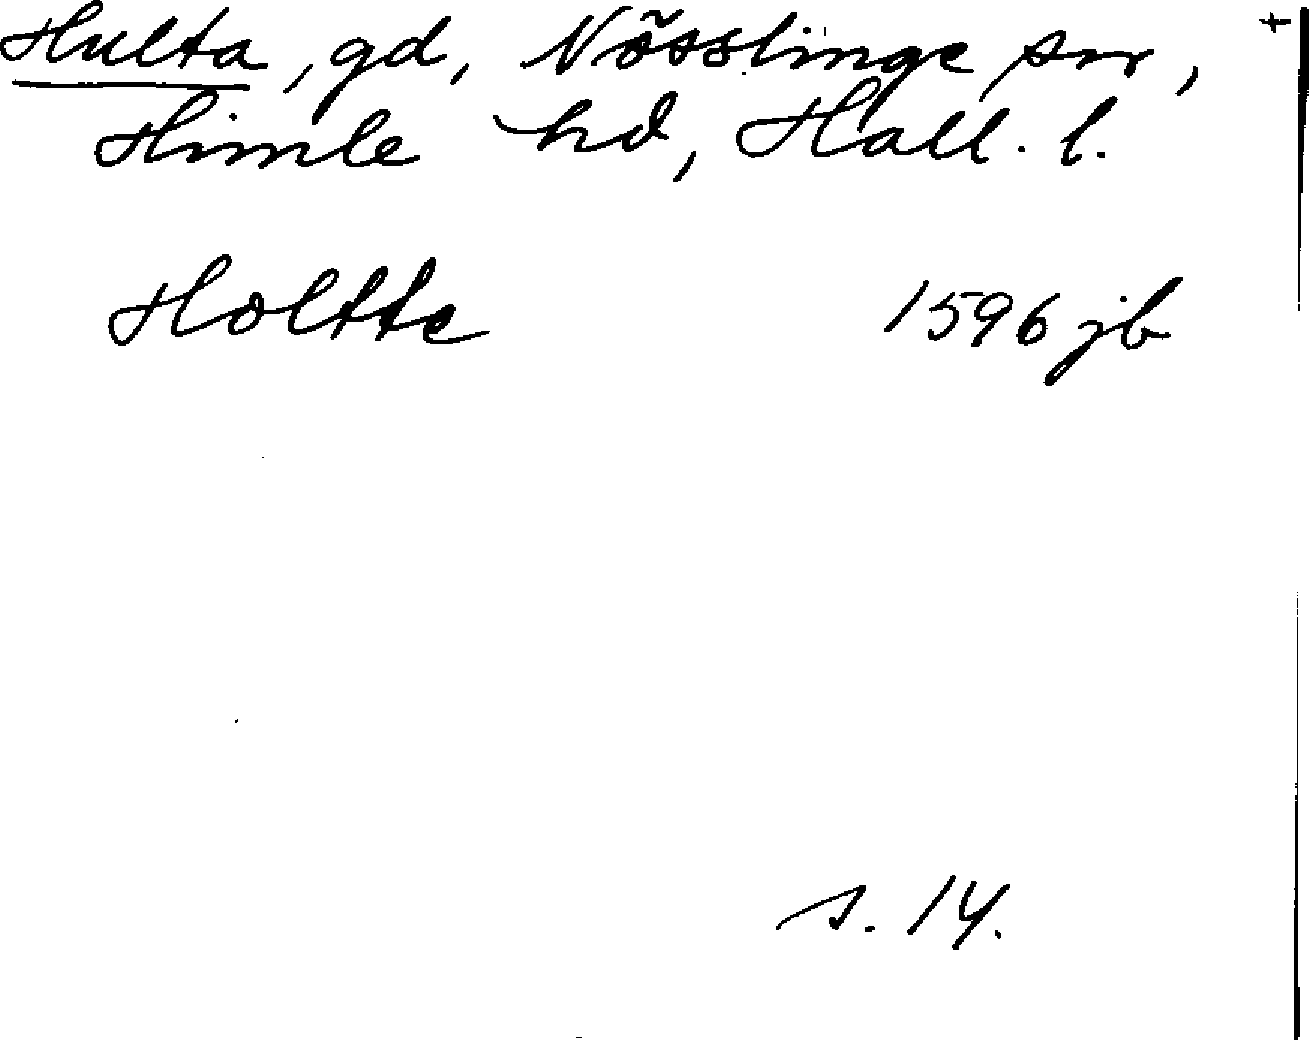 Hulta, gd, Nösslinge sn, +
Himle hd, Hall. l.
Holtte 1596 jb
s. 14.